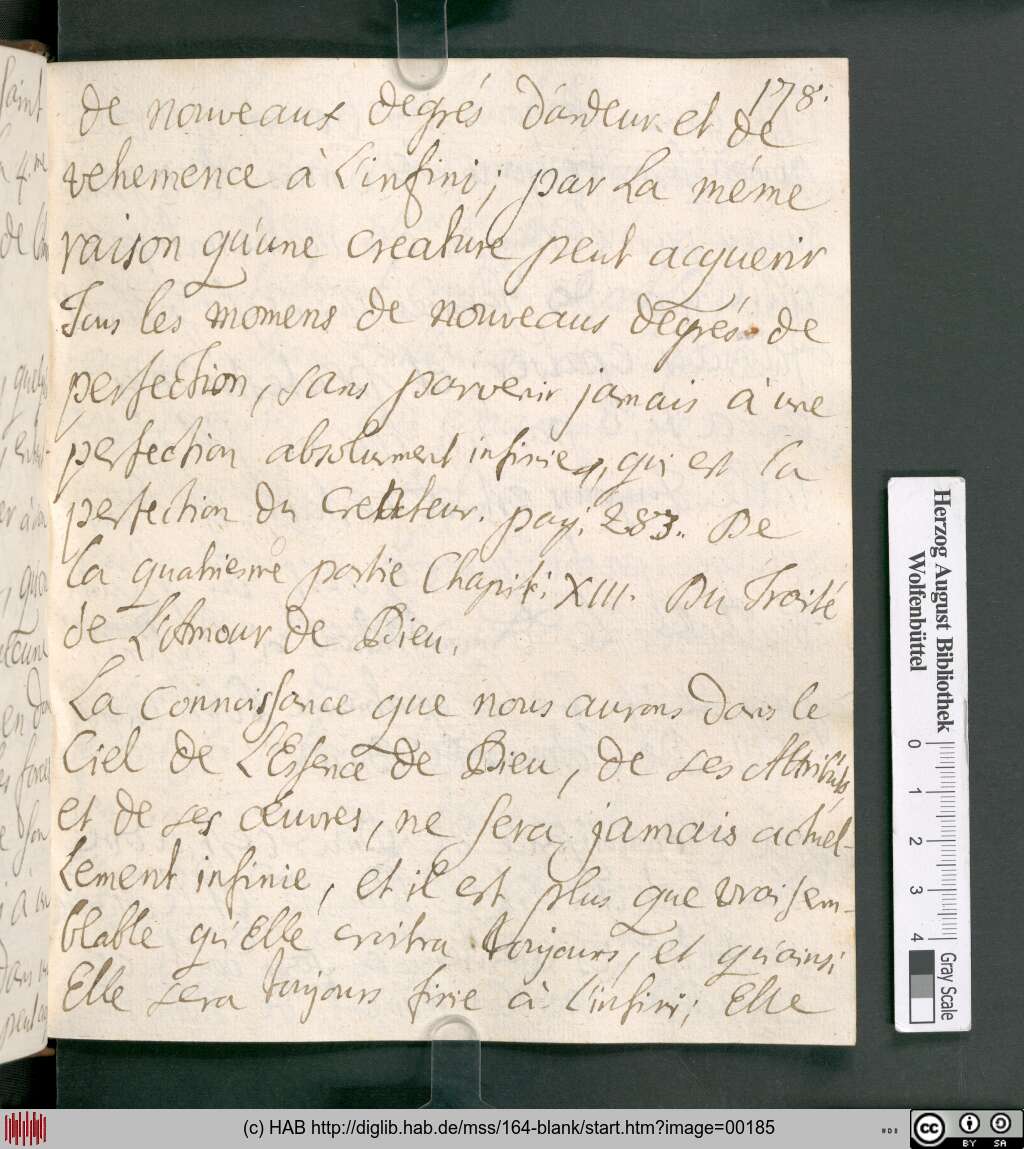 178.
de nouveaux degrés d'ardeur et de
vehemence à L'infini; par La méme
raison qu'une creature peut acquerir
Tous les momens de nouveaus degrés de
perfection, sans parvenir jamais à une
perfection absolument infinie, qui est la
perfection du Createur. pag. 283. De
la quatriesme partie Chapit: XIII. Du Traité
de L'Amour de Dieu.
La Connoissance que nous aurons dans le
Ciel de L'Essence de Dieu, de ses Attributs,
et de ses œuvres, ne sera jamais actuel-
lement infinie, et il est plus que vraisem-
blable qu'Elle croitra toujours, et qu'ainsi
Elle sera toujours finie à l'infini; Elle
Herzog August Bibliothek
Wolfenbüttel
0 1 2 3 4
Gray Scale
(c) HAB http://diglib.hab.de/mss/164-blank/start.htm?image=00185
cc BY SA